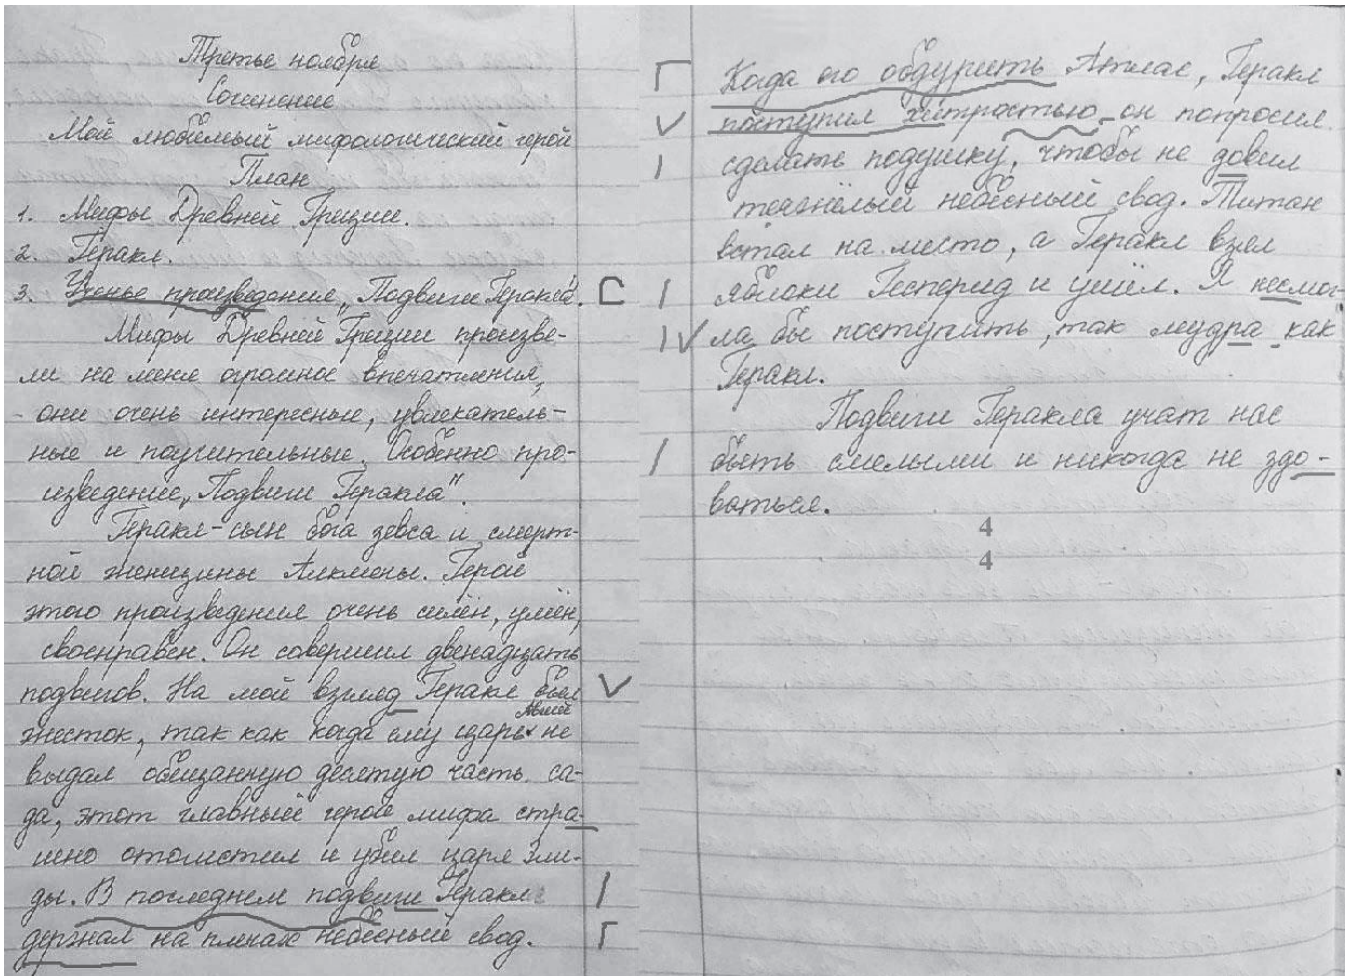 Третье ноября
Сочинение
Мой любимый мифологический герой
План
1. Мифы Древней Греции.
2. Геракл.
3. Ученье произведения „Подвиги Геракла".
Мифы Древней Греции произве-
ли на меня огромное впечатления,
они очень интересные, увлекатель-
ные и поучительные. Особенно про-
изведение „Подвиги Геракла".
Геракл – сын бога зевса и смерт-
ной женщины Алкмены. Герой
этого произведения очень силён, умён,
своенравен. Он совершил двенадцать
подвигов. На мой взгляд Геракл был
жесток, так как когда ему царь Авгий не
выдал обещанную десятую часть ста-
да, этот главный герой мифа стра-
шно отомстил и убил царя Эли-
ды. В последнем подвиги Геракл
держал на плечах небесный свод.
Г
Когда его обдурить Атлас, Геракл
V
поступил хитростью он попросил
сделать подушку, чтобы не довил
тяжёлый небесный свод. Титан
встал на место, а Геракл взял
яблоки Гесперид и ушёл. Я несмог-
ла бы поступить, так мудра как
Геракл.
Подвиги Геракла учат нас
быть смелыми и никогда не здо-
ваться.
4
4